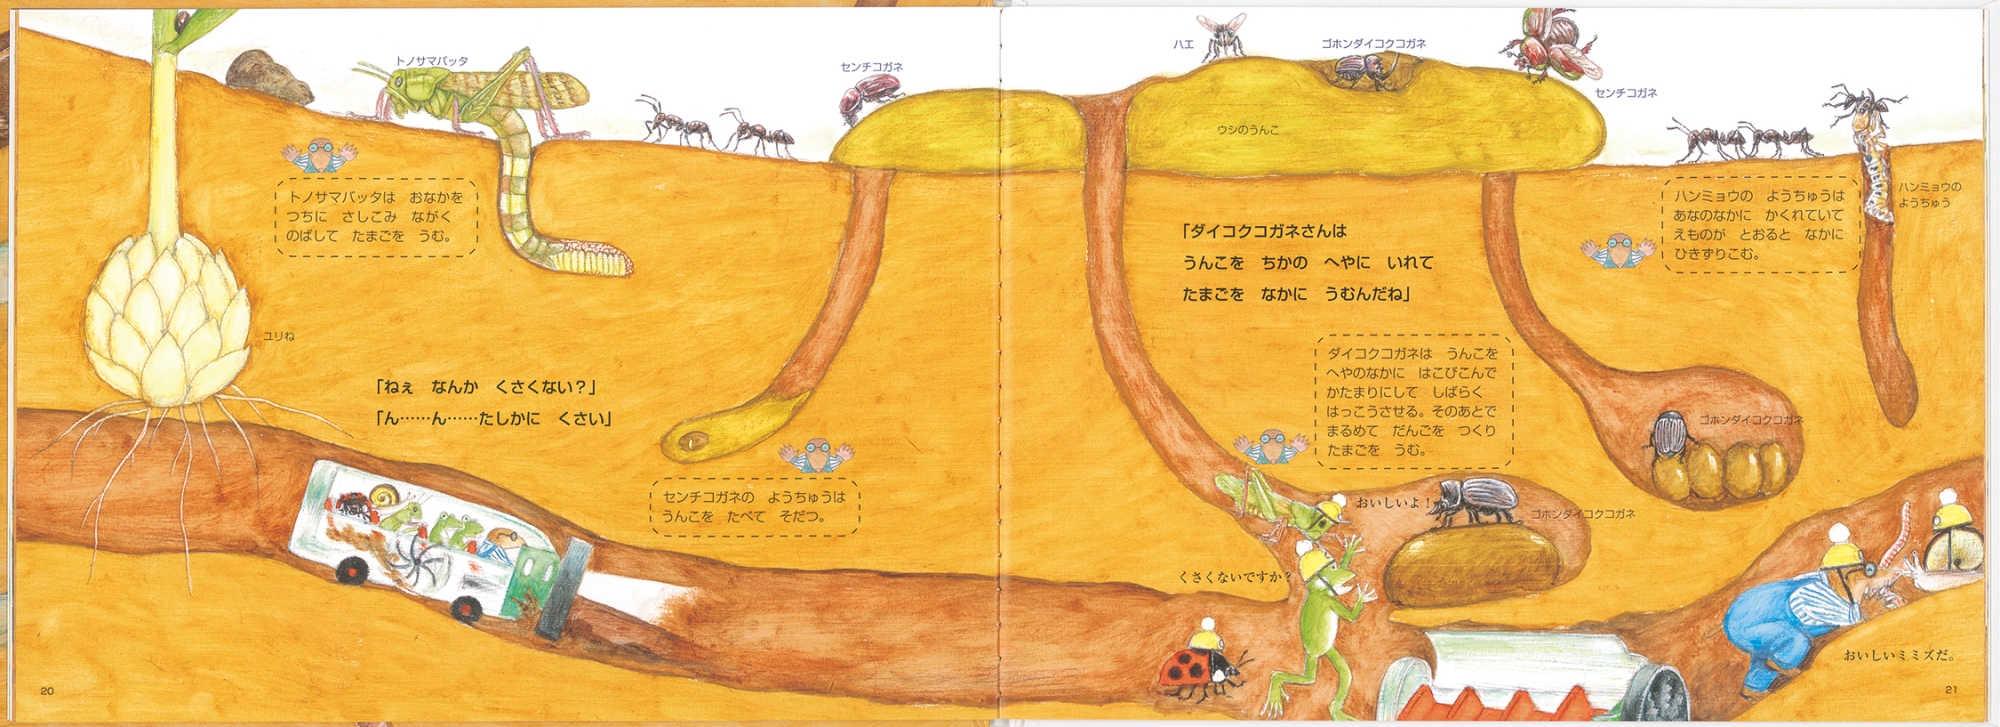 トノサマバッタ
トノサマバッタは　おなかを
つちに　さしこみ　ながく
のばして　たまごを　うむ。
ユリね
「ねぇ　なんか　くさくない？」
「ん……ん……たしかに　くさい」
センチコガネ
センチコガネの　ようちゅうは
うんこを　たべて　そだつ。
20
ハエ
ゴホンダイコクコガネ
センチコガネ
ウシのうんこ
「ダイコクコガネさんは
うんこを　ちかの　へやに　いれて
たまごを　なかに　うむんだね」
ダイコクコガネは　うんこを
へやのなかに　はこびこんで
かたまりにして　しばらく
はっこうさせる。そのあとで
まるめて　だんごを　つくり
たまごを　うむ。
ハンミョウの　ようちゅうは
あなのなかに　かくれていて
えものが　とおると　なかに
ひきずりこむ。
ハンミョウの
ようちゅう
ゴホンダイコクコガネ
おいしいよ！
ゴホンダイコクコガネ
くさくないですか？
おいしいミミズだ。
21